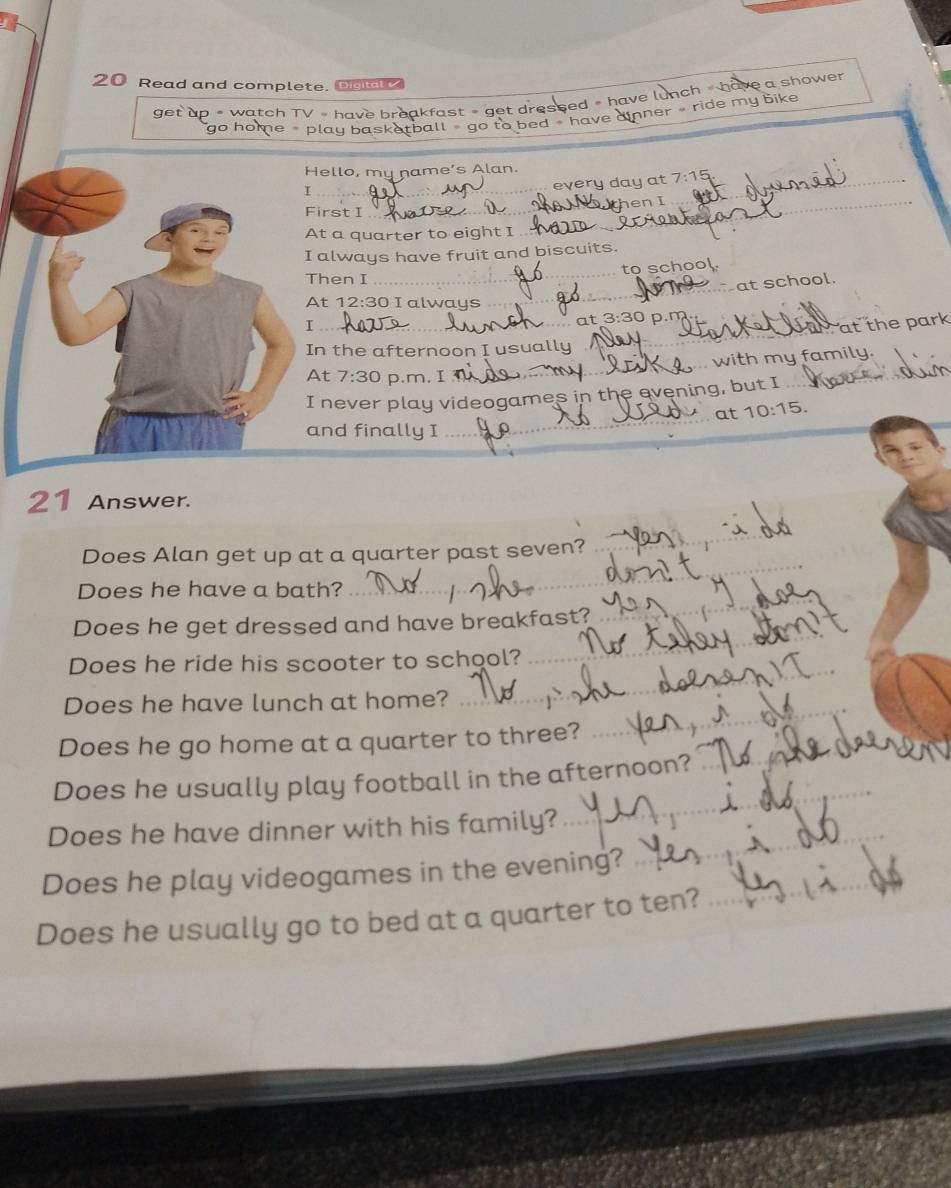 20 Read and complete. Digital ✓
get up • watch TV • have breakfast • get dressed • have lunch • have a shower
go home • play basketball • go to bed • have dinner • ride my bike
Hello, my name's Alan.
I get up every day at 7:15.
First I have a shower then I get dressed
At a quarter to eight I have breakfast
I always have fruit and biscuits.
Then I go to school.
At 12:30 I always go home at school.
I have lunch at 3:30 p.m.
In the afternoon I usually play basketball at the park
At 7:30 p.m. I ride my bike with my family.
I never play videogames in the evening, but I have din
and finally I go to bed at 10:15.
21 Answer.
Does Alan get up at a quarter past seven? yes, i do
Does he have a bath? No, she don't
Does he get dressed and have breakfast? yes, I does
Does he ride his scooter to school? No they don't
Does he have lunch at home? No, she doesn't
Does he go home at a quarter to three? yes, i do
Does he usually play football in the afternoon? No she doesen
Does he have dinner with his family? yes, i do
Does he play videogames in the evening? Yes, i do
Does he usually go to bed at a quarter to ten? Yes, i do